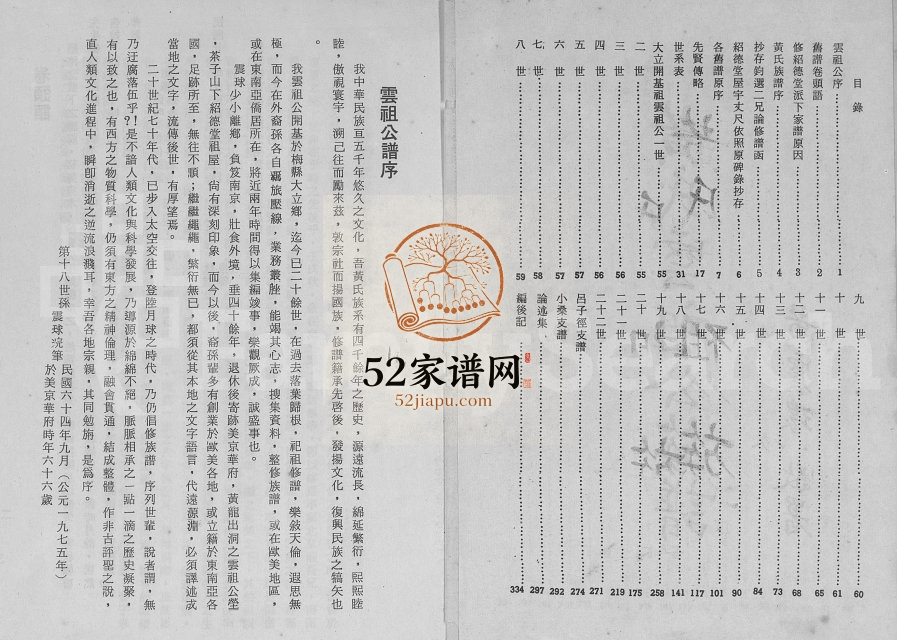 目錄
雲祖公序……1
舊譜卷頭語……2
修紹德堂派下家譜原因……3
黃氏族譜序……4
抄存鈞選二兄論修譜函……5
紹德堂屋宇丈尺依照原碑錄抄存……6
各舊譜原序……7
先賢傳略……17
世系表……31
大立開基祖雲祖公一世……55
二世……55
三世……56
四世……56
五世……57
六世……57
七世……58
八世……59
九世……60
十世……61
十一世……65
十二世……68
十三世……73
十四世……84
十五世……90
十六世……101
十七世……117
十八世……141
十九世……258
二十世……175
二十一世……219
二十二世……271
呂子徑支譜……274
小桑支譜……292
論述集……297
編後記……334
雲祖公譜序
我中華民族亘五千年悠久之文化，吾黃氏族系有四千餘年之歷史，源遠流長，綿延繁衍，熙熙睦
睦，傲視寰宇，溯己往而勵來茲，敦宗社而揚國族，修譜籍承先啓後，發揚文化，復興民族之鎬矢也
。
我雲祖公開基於梅縣大立鄉，迄今已二十餘世，在過去落葉歸根，祀祖修譜，樂敍天倫，遐思無
極，而今在外裔孫各自覊旅壓線，業務叢脞，能竭其心志，搜集資料，整修族譜，或在歐美地區，
或在東南亞僑居所在，將近兩年時間得以集編竣事，樂觀厥成，誠盛事也。
震球少小離鄉，負笈南京，壯食外境，垂四十餘年，退休後寄跡美京華府，黃龍出洞之雲祖公塋
，茶子山下紹德堂祖屋，尙有深刻印象，而今以後，裔孫輩多有創業於歐美各地，或立籍於東南亞各
國，足跡所至，無往不順；繼繼繩繩，繁衍無已，都須從其本地之文字語言，代遠源淵，必須譯述或
當地之文字，流傳後世，有厚望焉。
二十世紀七十年代，已步入太空交往，登陸月球之時代，乃仍倡修族譜，序列世輩，說者謂，無
乃迂廣落伍乎？！是不諳人類文化與科學發展，乃導源於綿綿不絕，脈脈相承之一點一滴之歷史凝聚，
有以致之也，有西方之物質科學，仍須有東方之精神倫理，融會貫通，結成整體，作非古評聖之說，
直人類文化進程中，瞬卽消逝之逆流浪濺耳，幸吾各地宗親，其同勉旃，是爲序。
第十八世孫震球浣筆於美京華府時年六十六歲
民國六十四年九月（公元一九七五年）
52家谱网
52jiapu.com